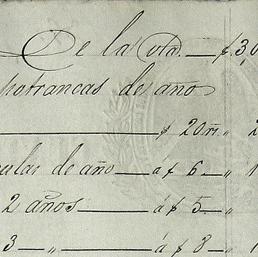 De la vta. — $ 3,0
potrancas de año
— $ 20 rs. „ 2
ulas de año — á $ 6 — „ 1
2 años — á $ 5 — „
3 — „ — á $ 8 — „ 1